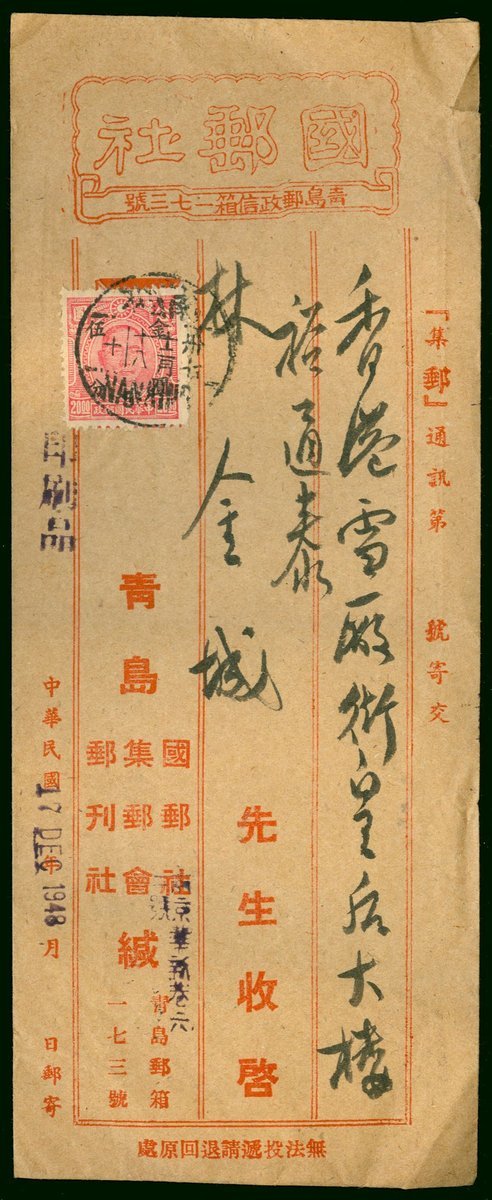 國郵社
青島郵政信箱一七三號
『集郵』通訊第 號寄交
香港雪厰街皇后大樓
裕通泰
林金城
先生收啓
青島
國郵社
集郵會
郵刊社
緘
青島郵箱
一七三號
南京華新巷六
印刷品
2000
中華民國 年 月 日郵寄
17 DEC 1948
無法投遞請退回原處